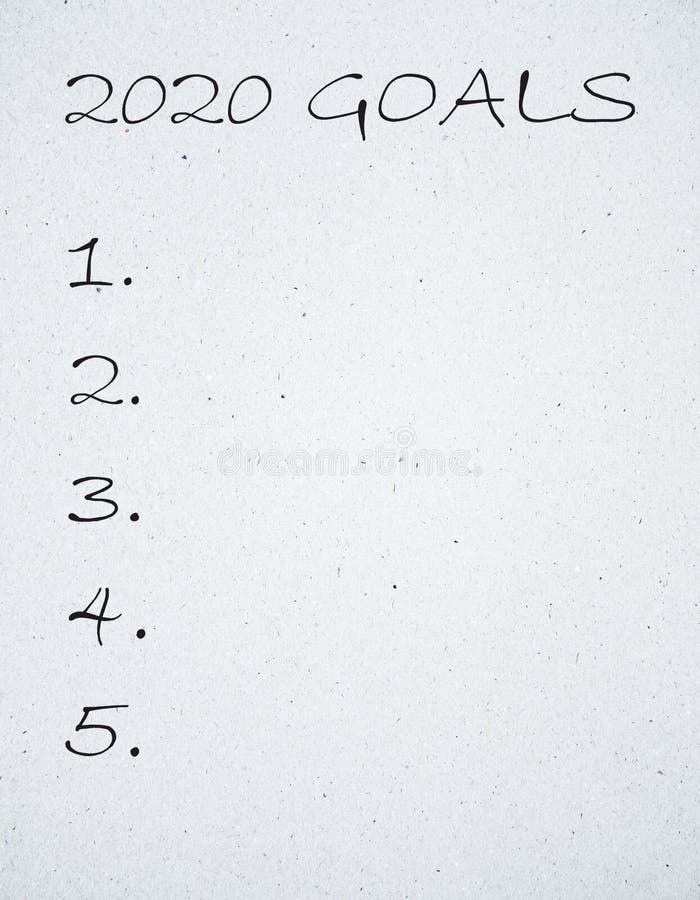 2020 GOALS
1.
2.
dreamstime.
3.
4.
5.